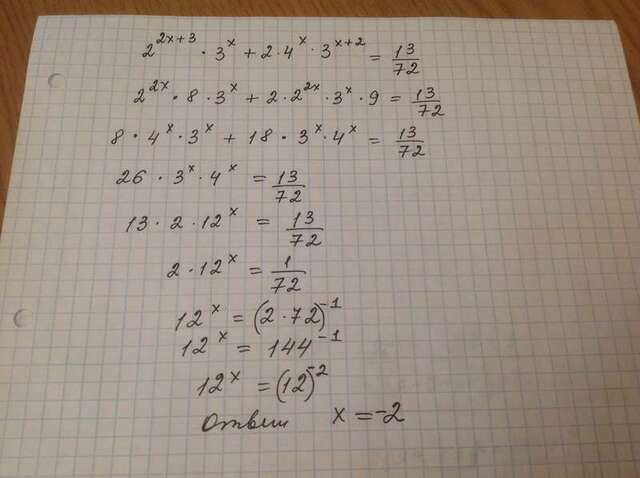 2^{2x+3} · 3^x + 2 · 4^x · 3^{x+2} = 13/72
2^{2x} · 8 · 3^x + 2 · 2^{2x} · 3^x · 9 = 13/72
8 · 4^x · 3^x + 18 · 3^x · 4^x = 13/72
26 · 3^x · 4^x = 13/72
13 · 2 · 12^x = 13/72
2 · 12^x = 1/72
12^x = (2 · 72)^{-1}
12^x = 144^{-1}
12^x = (12)^{-2}
Ответ x = -2